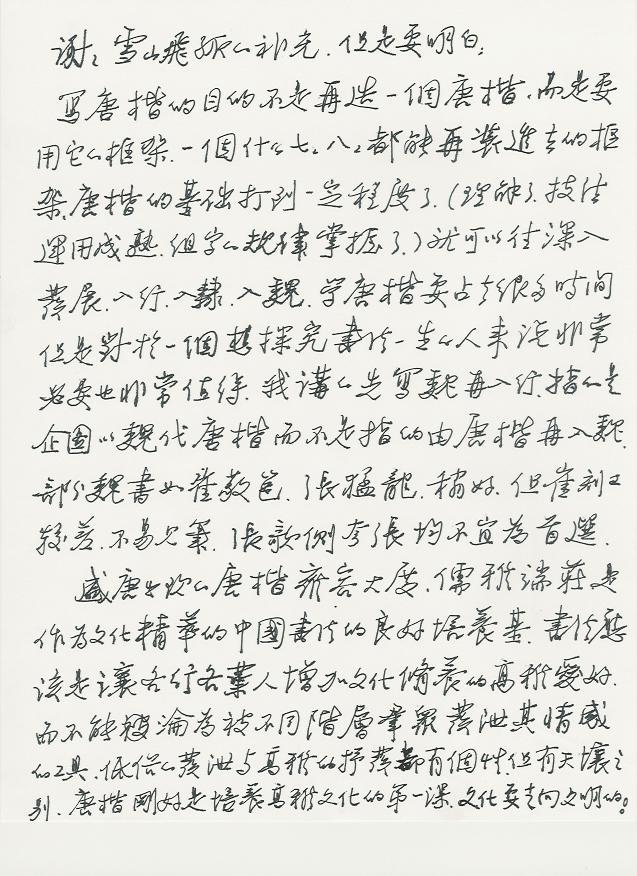 谢谢雪山飛狐的补充.但是要明白:
写唐楷的目的不是再造一個唐楷.而是要
用它的框架.一個什么七七八八都能再装進去的框
架.唐楷的基础打到一定程度了.(理解了.技法
運用成熟.组字的規律掌握了.)就可以往深入
發展.入行.入隸.入魏.学唐楷要占去很多時间
但是對於一個想探究書法一生的人来说非常
必要也非常值得.我講的先寫魏再入行.指的是
企图以魏代唐楷而不是指的由唐楷再入魏.
部分魏書如崔敬邕.張猛龍.稍好.但崔刻工
較差.不易見筆.張欹側夸張均不宜為首選.
盛唐的唐楷雍容大度.儒雅端莊是
作为文化精華的中國書法的良好培養基.書法應
该是讓各行各業人增加文化修養的高雅愛好.
而不能被淪為被不同階層羣眾發泄其情感
的工具.低俗的發泄与高雅的抒發都有個性但有天壤之
别.唐楷剛好是培養高雅文化的第一课.文化要走向文明的。